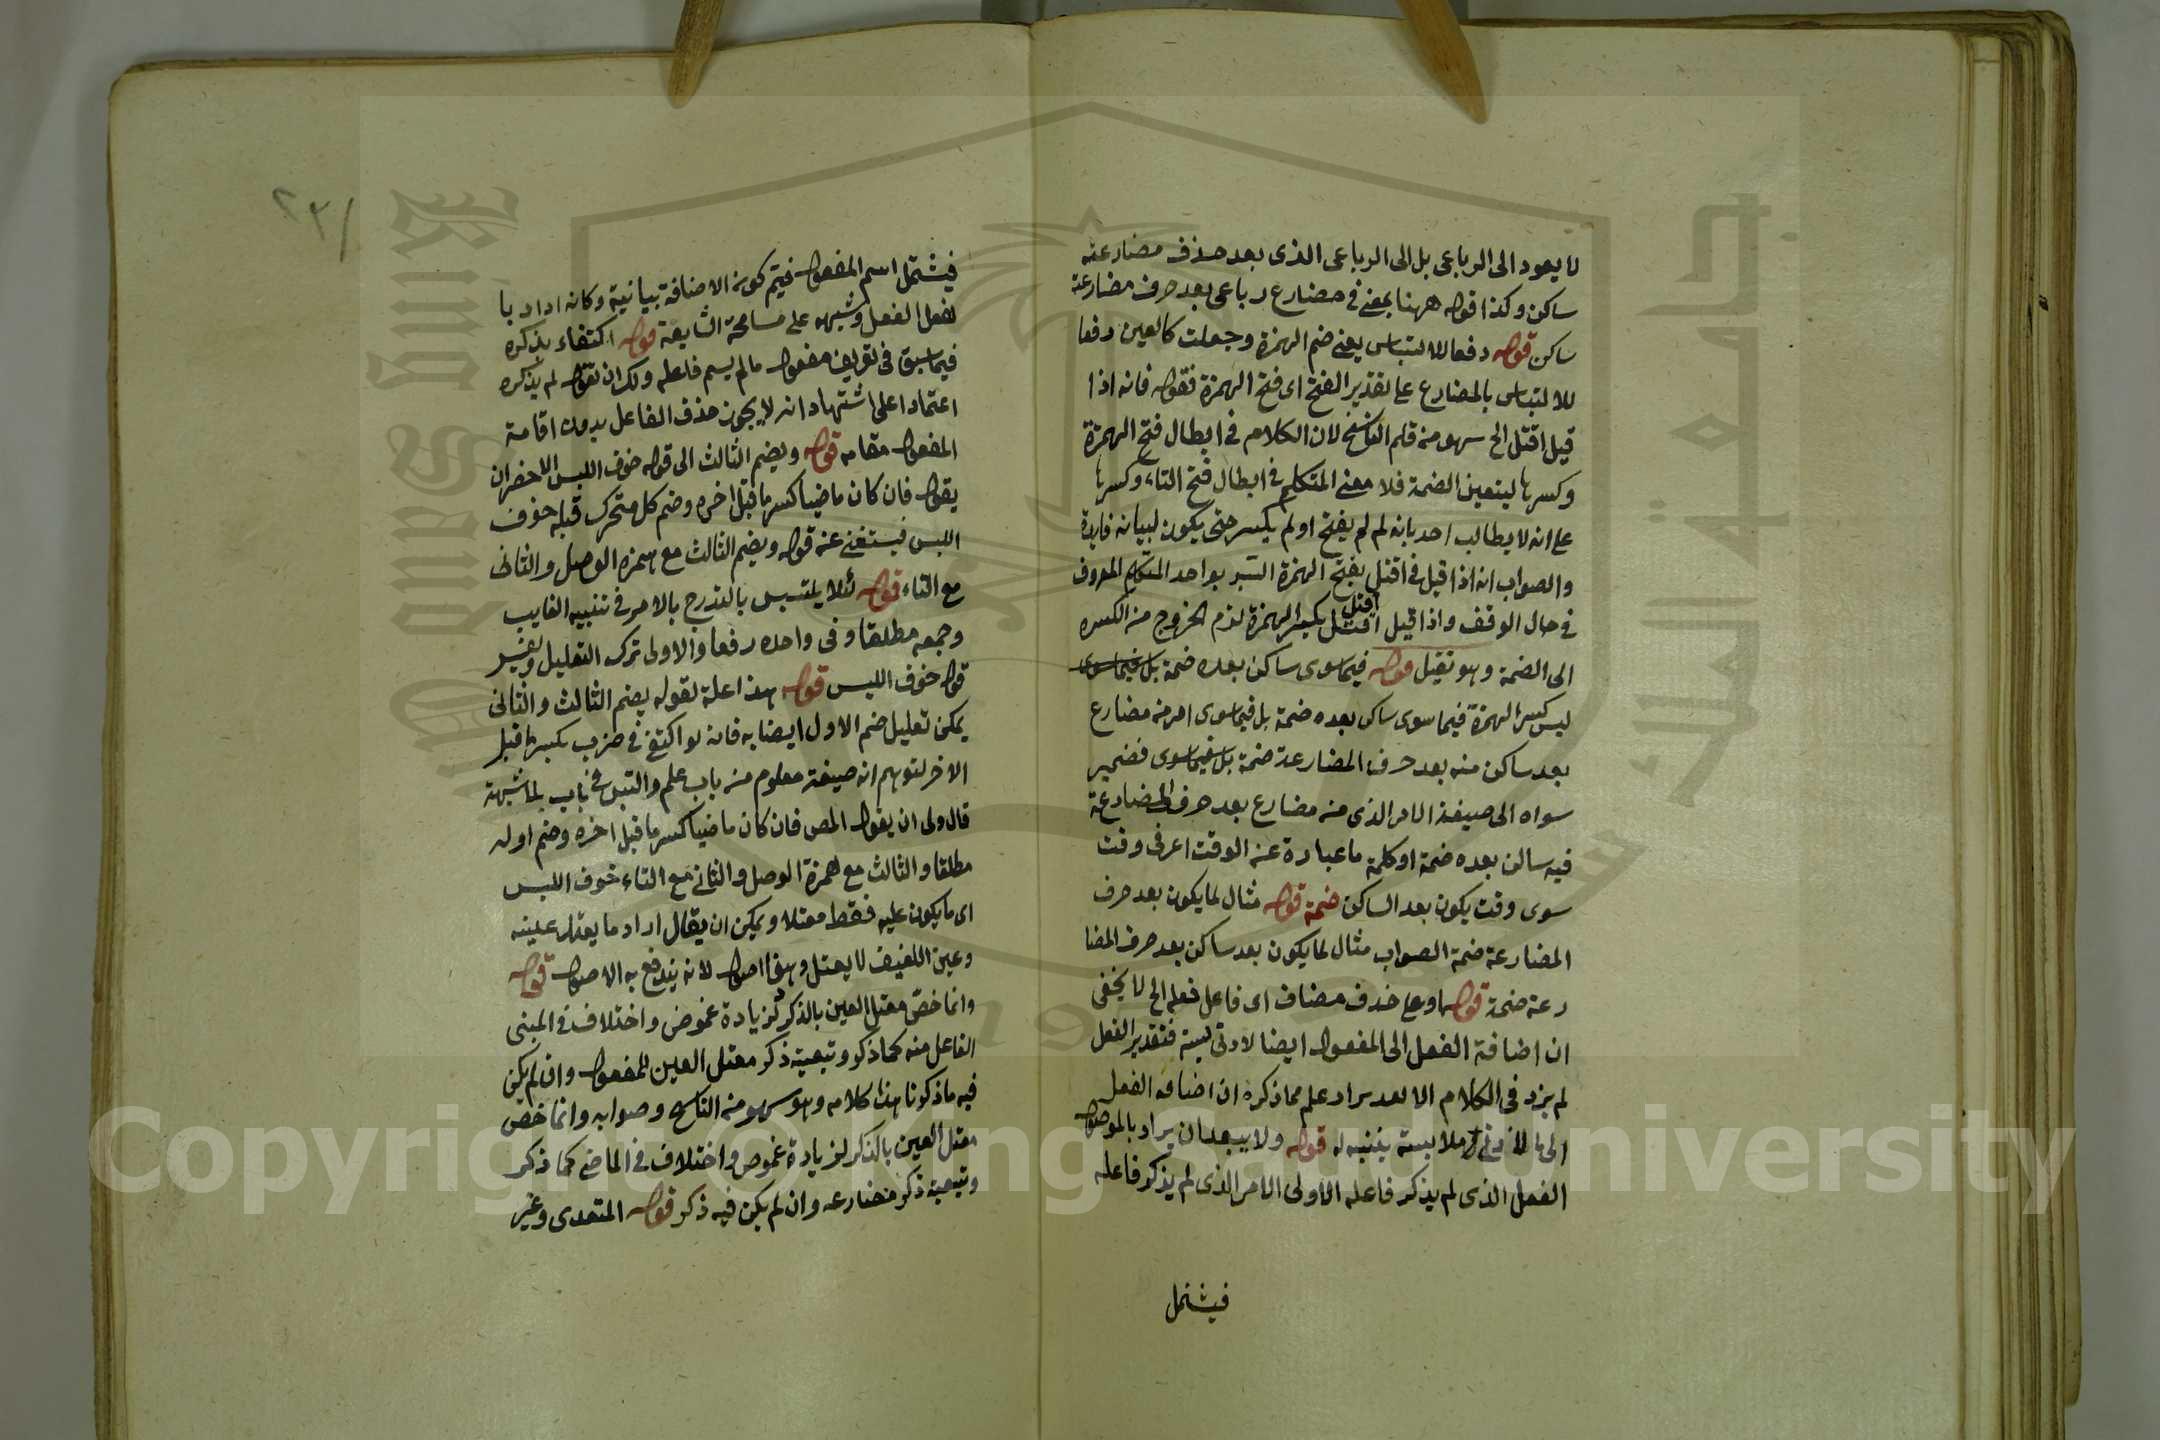 لا يعود الى الرباعى بل الى الرباعى الذى بعد حذف مضارعته
ساكن وكذا قوله ههنا بمعنى فى مضارع رباعى بعد حرف مضارعة
ساكن قوله دفعا للالتباس يعنى ضم الهمزة وجعلت كالعين دفعا
للالتباس بالمضارع على تقدير الفتح اى فتح الهمزة فقوله فانه اذا
قيل اقتل الخ سهو من قلم الناسخ لان الكلام فى ابطال فتح الهمزة
وكسرها ليتعين الضمة فلا معنى المتكلم فى ابطال فتح التاء وكسرها
على انه لا يطالب احد بانه لم لم يفتح او لم يكسر حتى يكون لبيانه فايدة
والصواب انه اذا قيل فى اقتل بفتح الهمزة التبس بواحد المتكلم المعروف
فى حال الوقف واذا قيل اقتل اقتل بكسر الهمزة لزم الخروج من الكسره
الى الضمة وهو ثقيل قوله فيما سوى ساكن بعده ضمة بل فيما سوى
ليس كسر الهمزة فيما سوى ساكن بعده ضمة بل فيما سوى امر من مضارع
بعد ساكن منه بعد حرف المضارعة ضمة بل فيما سوى فضمير
سواه الى صيغة الامر الذى من مضارع بعد حرف المضارعة
فيه ساكن بعده ضمة او كلمة ما عبارة عن الوقت اعرفى وقت
سوى وقت يكون بعد الساكن ضمة قوله مثال لما يكون بعد حرف
المضارعة ضمة الصواب مثال لما يكون بعد ساكن بعد حرف المضا
رعة ضمة قوله او على حذف مضاف اى فاعل فعله الخ لا يخفى
ان اضافة الفعل الى المفعول ايضا لادنى ملابسة فتقدير الفعل
لم يزد فى الكلام الا بعد يراد علم مما ذكره ان اضافه الفعل
الى ملابسة ينبه له قوله ولا يبعد ان يراد بالموصول
الفعل الذى لم يذكر فاعله الاولى الامر الذى لم يذكر فاعله
فيشتمل
٢٣١
فيشتمل اسم المفعول فيتم كون الاضافة بيانية وكانه اراد با
لفعل الفعل وشبهه على مسامحة الشايعة قوله اكتفاء بذكره
فيما سبق فى تعريف مفعول ما لم يسم فاعله ولك ان تقول لم يذكره
اعتمادا على اشتهاد انه لا يجوز حذف الفاعل بدون اقامة
المفعول مقامه قوله ويضم الثالث الى قوله خوف اللبس الاخضران
يقول فان كان ماضيا كسر ما قبل اخره وضم كل متحرك قبله خوف
اللبس فيستغنى عنه قوله ويضم الثالث مع همزه الوصل والثانى
مع التاء قوله لئلا يلتبس بالدرج بالامر فى تثنيه الغايب
وجمعه مطلقا وفى واحده رفعا والاولى ترك التعليل وتفسير
قوله خوف اللبس قوله هذا علة لقوله يضم الثالث والثانى
يمكن تعليل ضم الاول ايضا به فانه لو اكتفى فى ضرب بكسر ما قبل
الاخر لتوهم انه صيغة معلوم من باب علم والتبس فى باب لما شبهة
قال ولى ان يقول المص فان كان ماضيا كسر ما قبل اخره وضم اوله
مطلقا والثالث مع همزة الوصل والثانى مع التاء خوف اللبس
اى ما يكون عليه فقط معتلا ويمكن ان يقال اراد ما يعتل عينه
وعين اللفيف لا يعتل وهذا اصول لانه يندفع به الاصول قوله
وانما خص معتل العين بالذكر لزيادة غموض واختلاف فى المبنى
الفاعل منه كما ذكر وتبعيته ذكر معتل العين للمفعول وان لم يكن
فيه ما ذكرنا هذا كلامه وهو سهو من الناسخ وصوابه وانما خص
معتل العين بالذكر لزيادة غموض واختلاف فى الماضى كما ذكر
وتبعية ذكر مضارعه وان لم يكن فيه ذكر قوله المتعدى وغير
Copyright © King Saud University